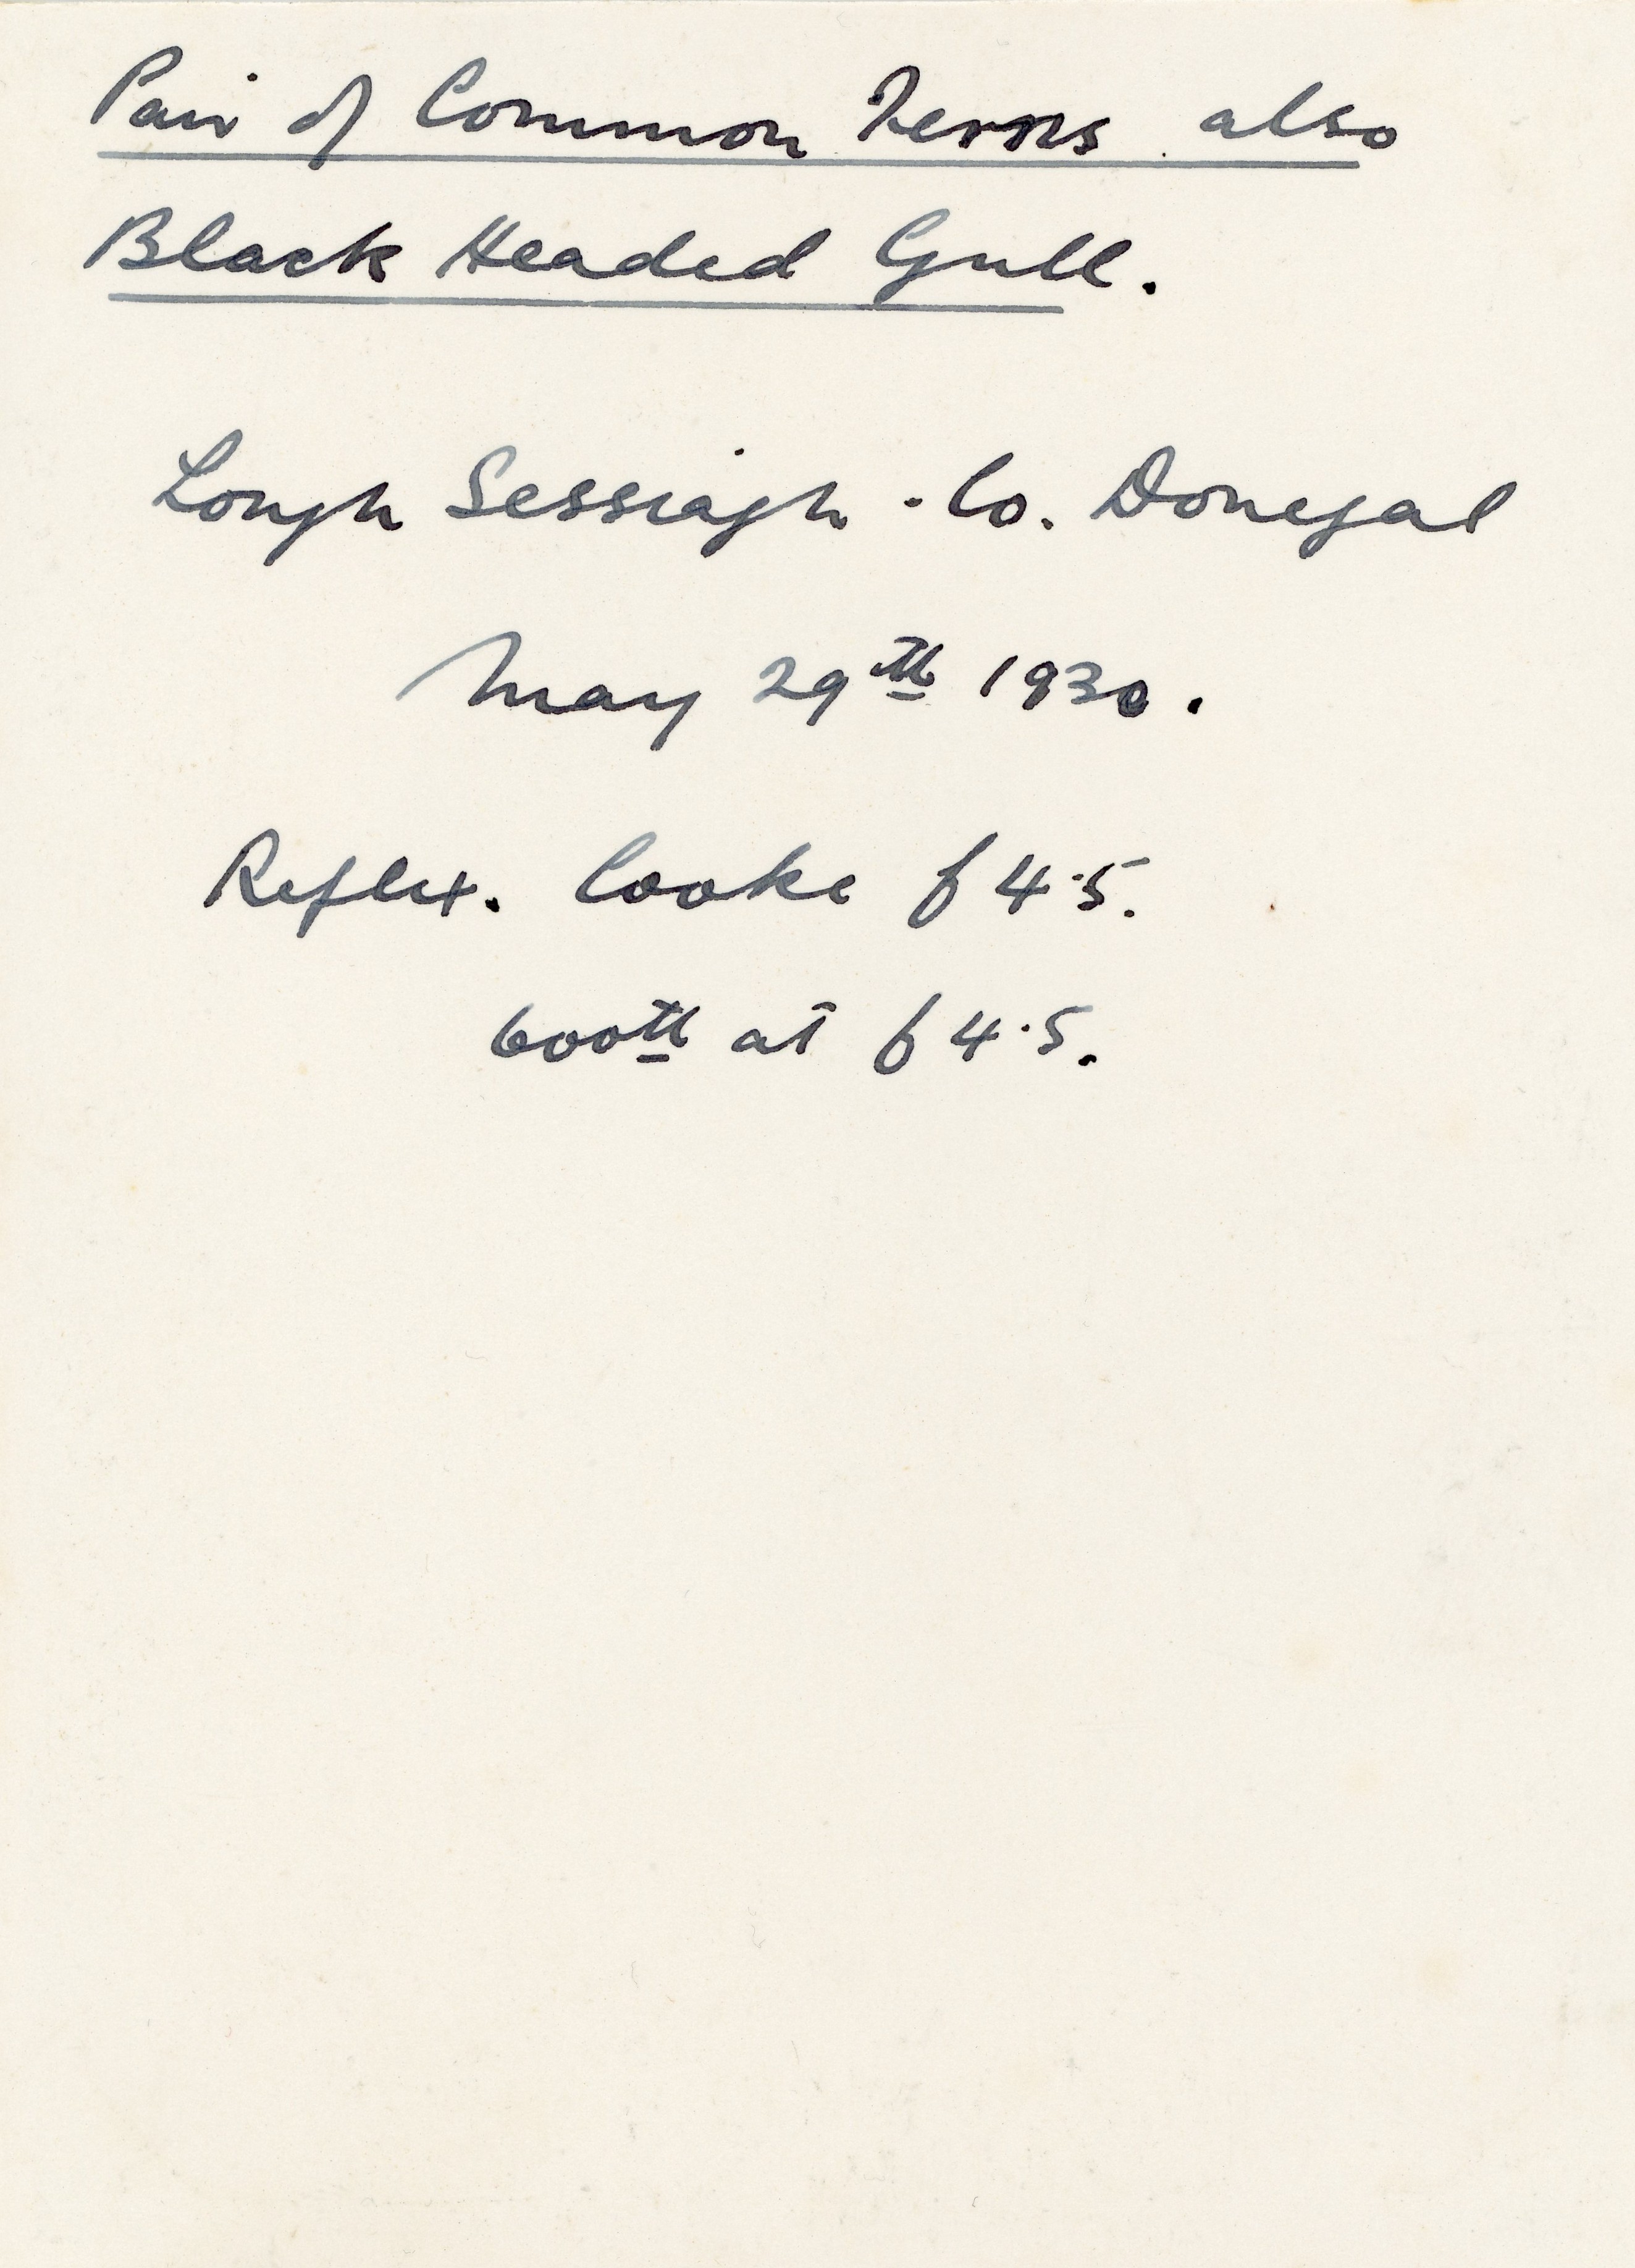 Pair of Common Terns also
Black Headed Gull.
Lough Sessiagh - Co. Donegal
May 29th 1930.
Reflex. Cooke f 4.5.
600th at f 4.5.